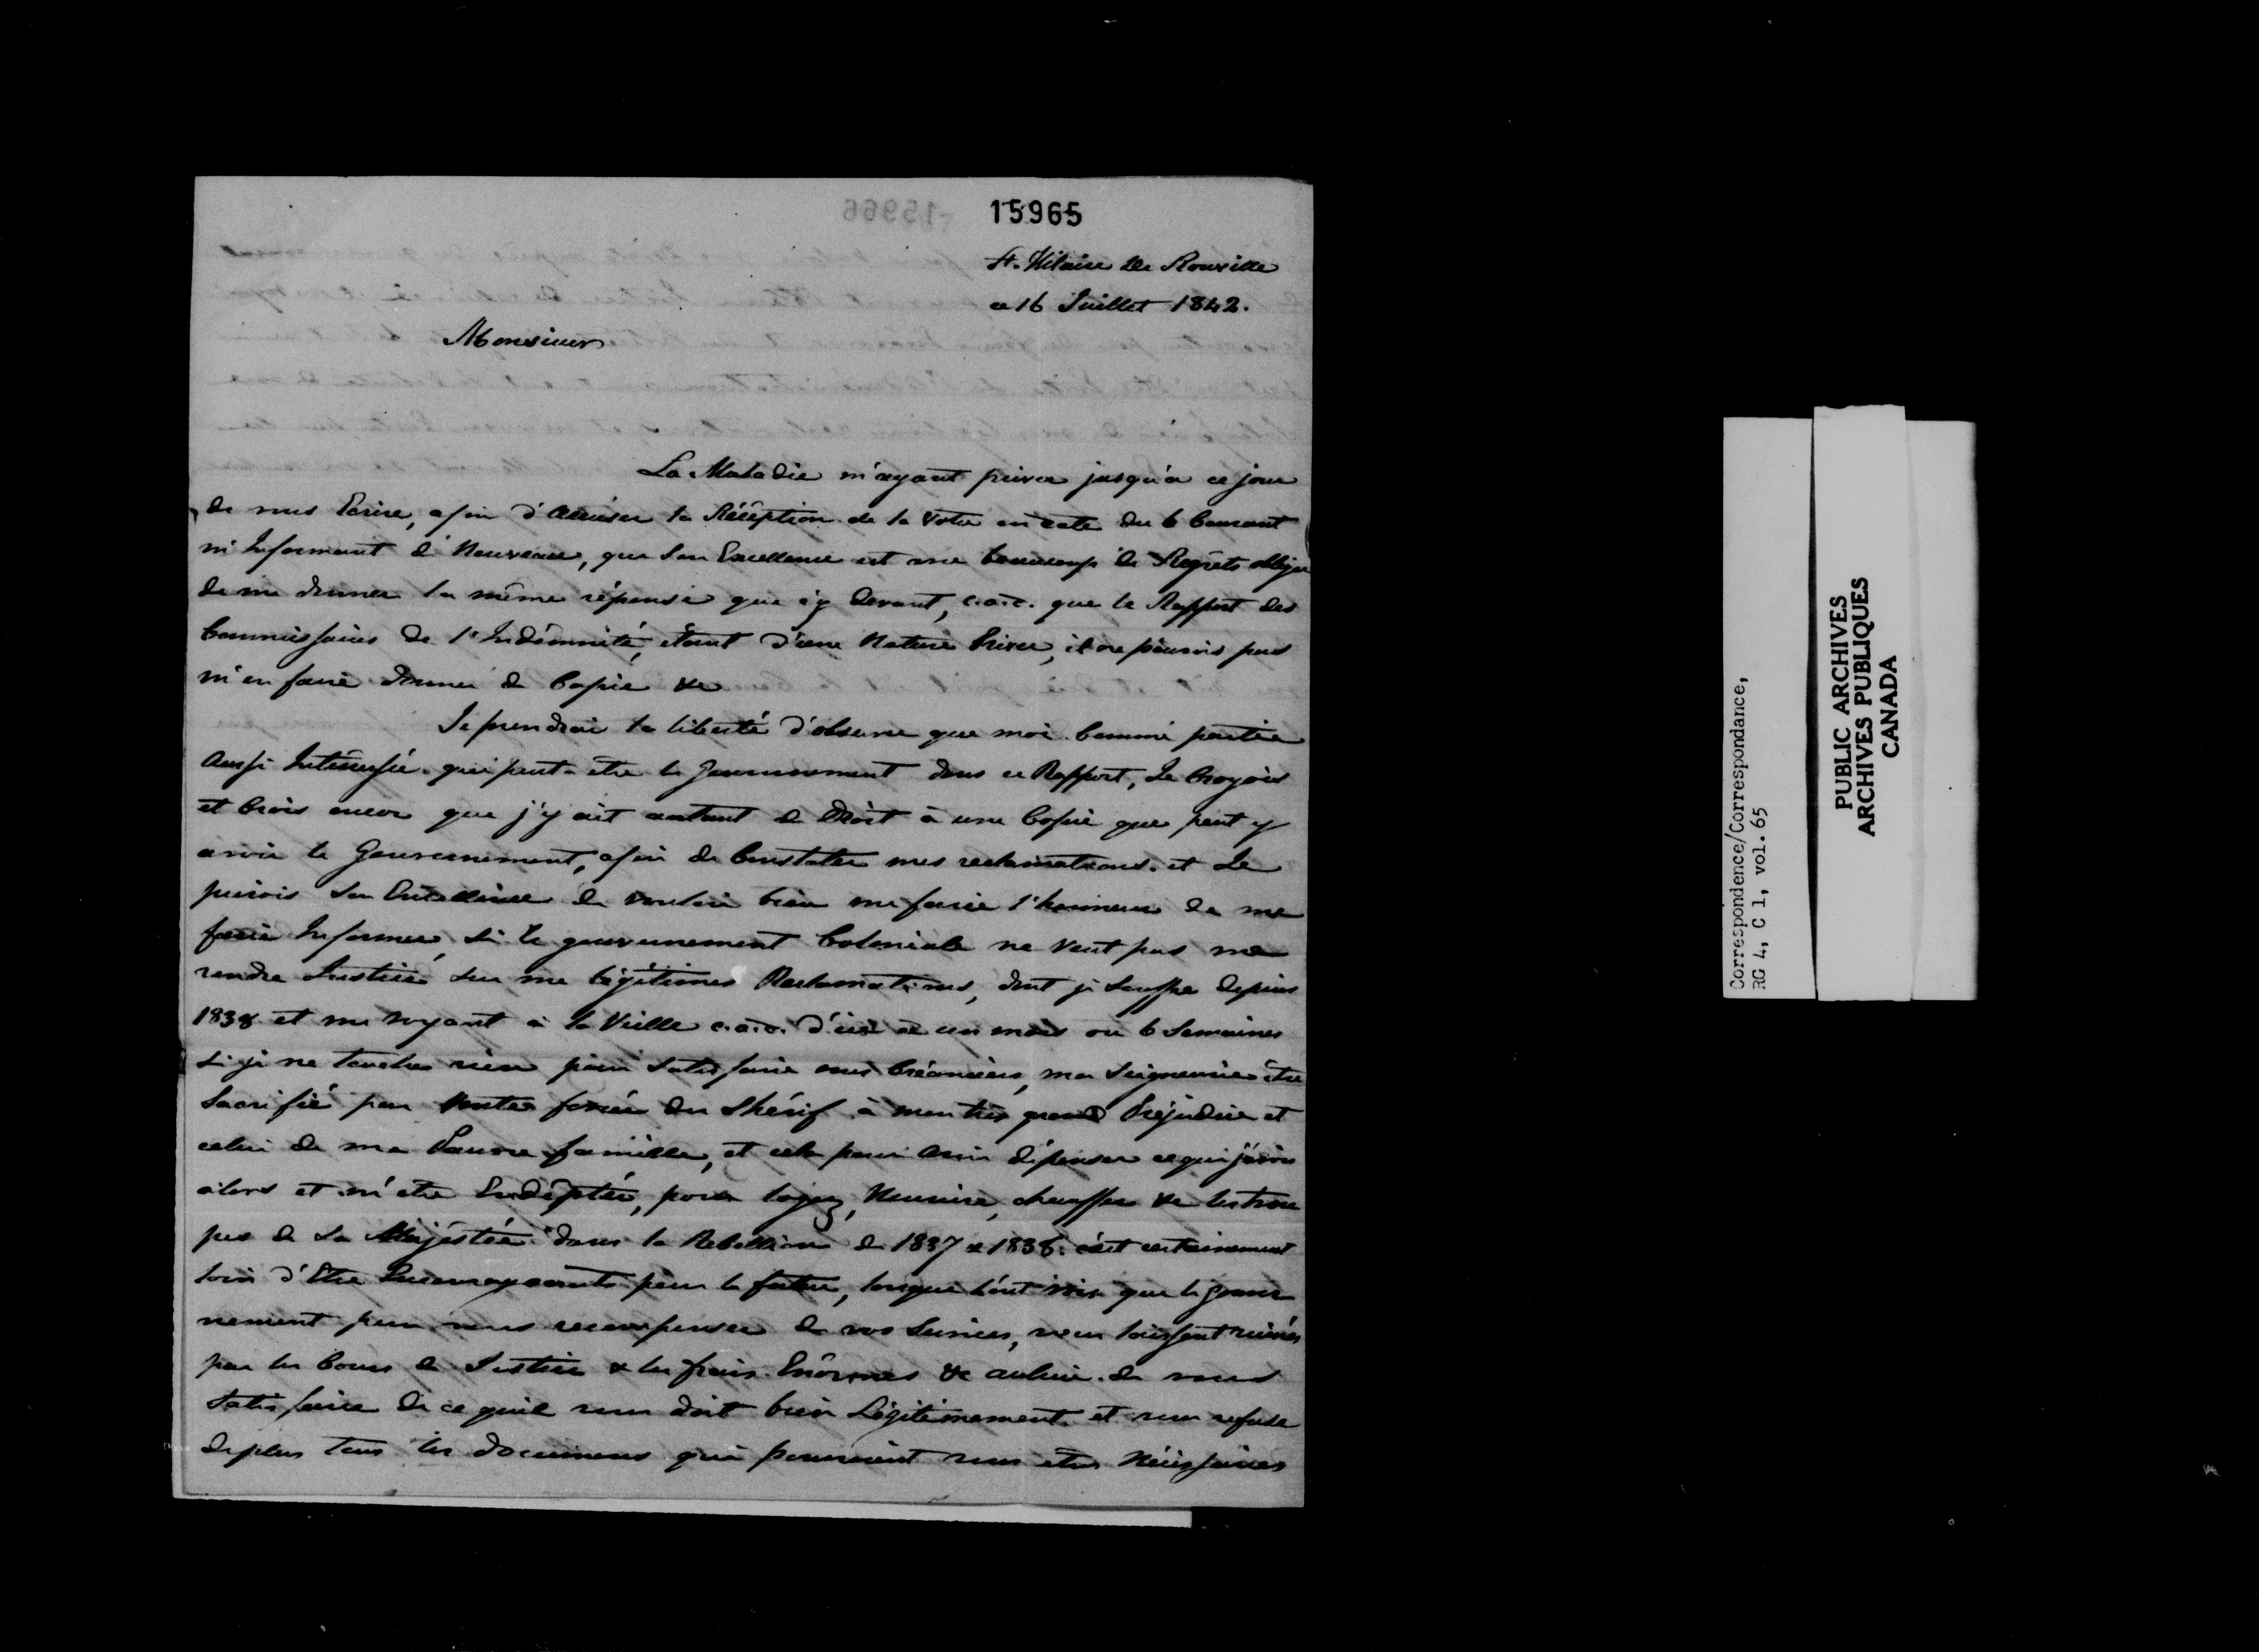 15965
St. Hilaire de Rouville
ce 16 Juillet 1842.
Monsieur
La Maladie m'ayant privée jusqu'a ce jour
de vous Ecrire, afin d'accuser la Réception de la votre en date du 6 Courant
m'Informant de Nouveau, que Son Excellence est avec beaucoup de Regrèts obliger
de me donner la même réponse que cy devant, c.a.d. que le Rapport des
Commissaires de l'Indémnité, étant d'une Nature Privée, il ne pouvois pas
m'en faire donner de Copie &c
Je prendrai la liberté d'observer que moi Comme partie
Aussi Intéressée que peut-être le Gouvernement dans ce Rapport, Je Croyois
et Crois encore que j'y ait autant de Droit à une Copie que peut y
avoir le Gouvernement, afin de Constater mes reclamations. et Je
prierois Son Excellence de vouloir bien me faire l'honneur de me
faire Informer, Si le gouvernement Coloniale ne veut pas me
rendre Justice sur me légitimes Reclamations, dont je Souffre depuis
1838 et me voyant à la Veille c.a.d. d'ici à un mois ou 6 Semaines
Si je ne touche rien pour Satisfaire mes Créanciers, ma Seigneurie être
Sacrifié par Vente forcée du Shérif à mon très grand Préjudice et
celui de ma Pauvre famille, et cela pour avoir dépenser ce que j'avois
alors et m'être Endéptée, pour loger, Nourrire, chauffer &c les trou
pes de Sa Majéstée dans la Rebellion de 1837 & 1838. c'est certainement
loin d'Etre Encourageants pour le future, lorsque l'ont voir que le gouver
nement pour vous recompenser de vos Services, vous laissent ruinés
par les Cours de Justice & les frais Enormes &c aulieu de vous
Satisfaire de ce quil vous doit bien Légitimement et vous refuse
deplus tous les documens qui pourroient vous êtres Nécessaires
Correspondence/Correspondance,
RG 4, C 1, vol. 65
PUBLIC ARCHIVES
ARCHIVES PUBLIQUES
CANADA